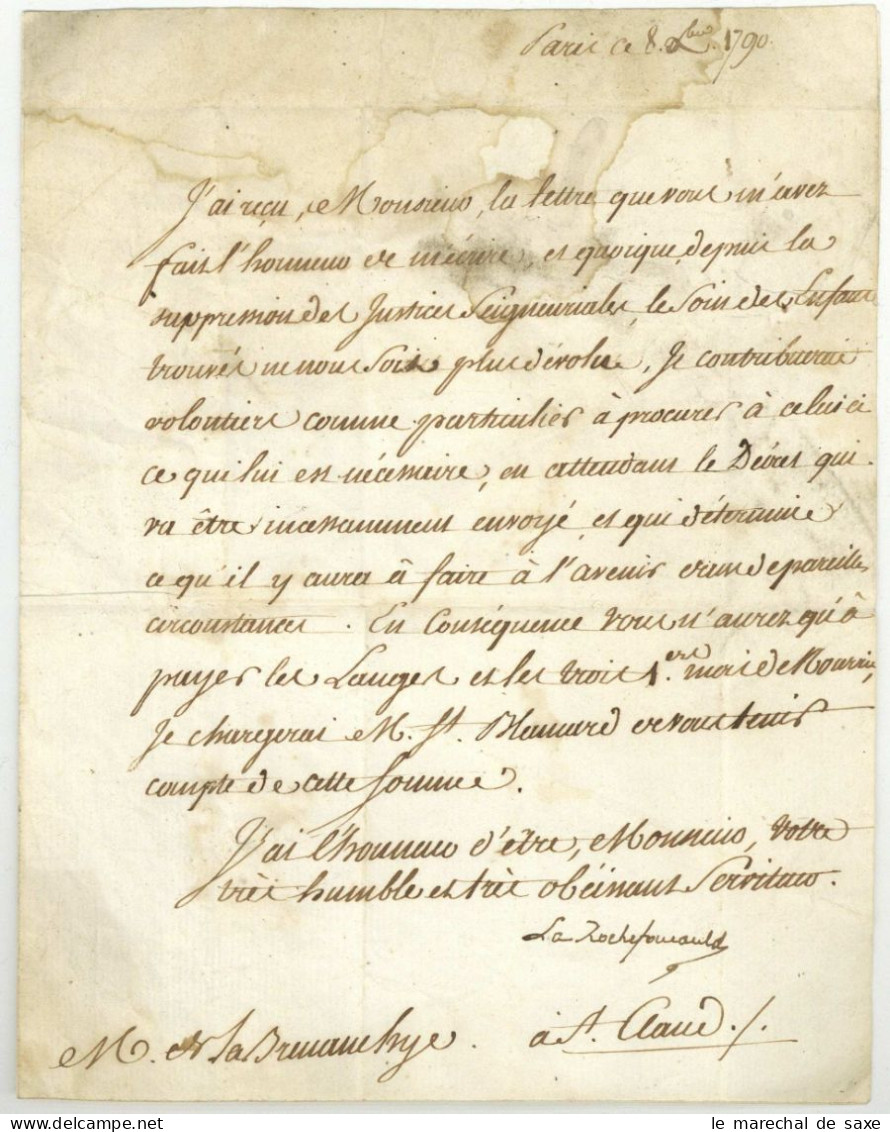 Paris ce 8. Xbre. 1790.
J'ai reçu, Monsieur, la lettre que vous m'avez
fait l'honneur de m'écrire, et quoique depuis la
suppression des Justices Seigneuriales, le Soin des Enfans
trouvés ne nous Soit plus dévolu, Je contribuerai
volontiers comme particulier à procurer à celui ci
ce qui lui est nécessaire, en attendant le Décret qui
va être incessamment envoyé, et qui détermine
ce qu'il y aura à faire à l'avenir dans de pareilles
circonstances. En Conséquence vous n'aurez qu'à
payer les Langes et les trois 1.ers mois de Nourrice,
Je chargerai M. St. de vous tenir
compte de cette Somme.
J'ai l'honneur d'être, Monsieur, votre
très humble et très obéissant Serviteur.
La Rochefoucauld
M. de la
à St. Claud ./.
le marechal de saxe